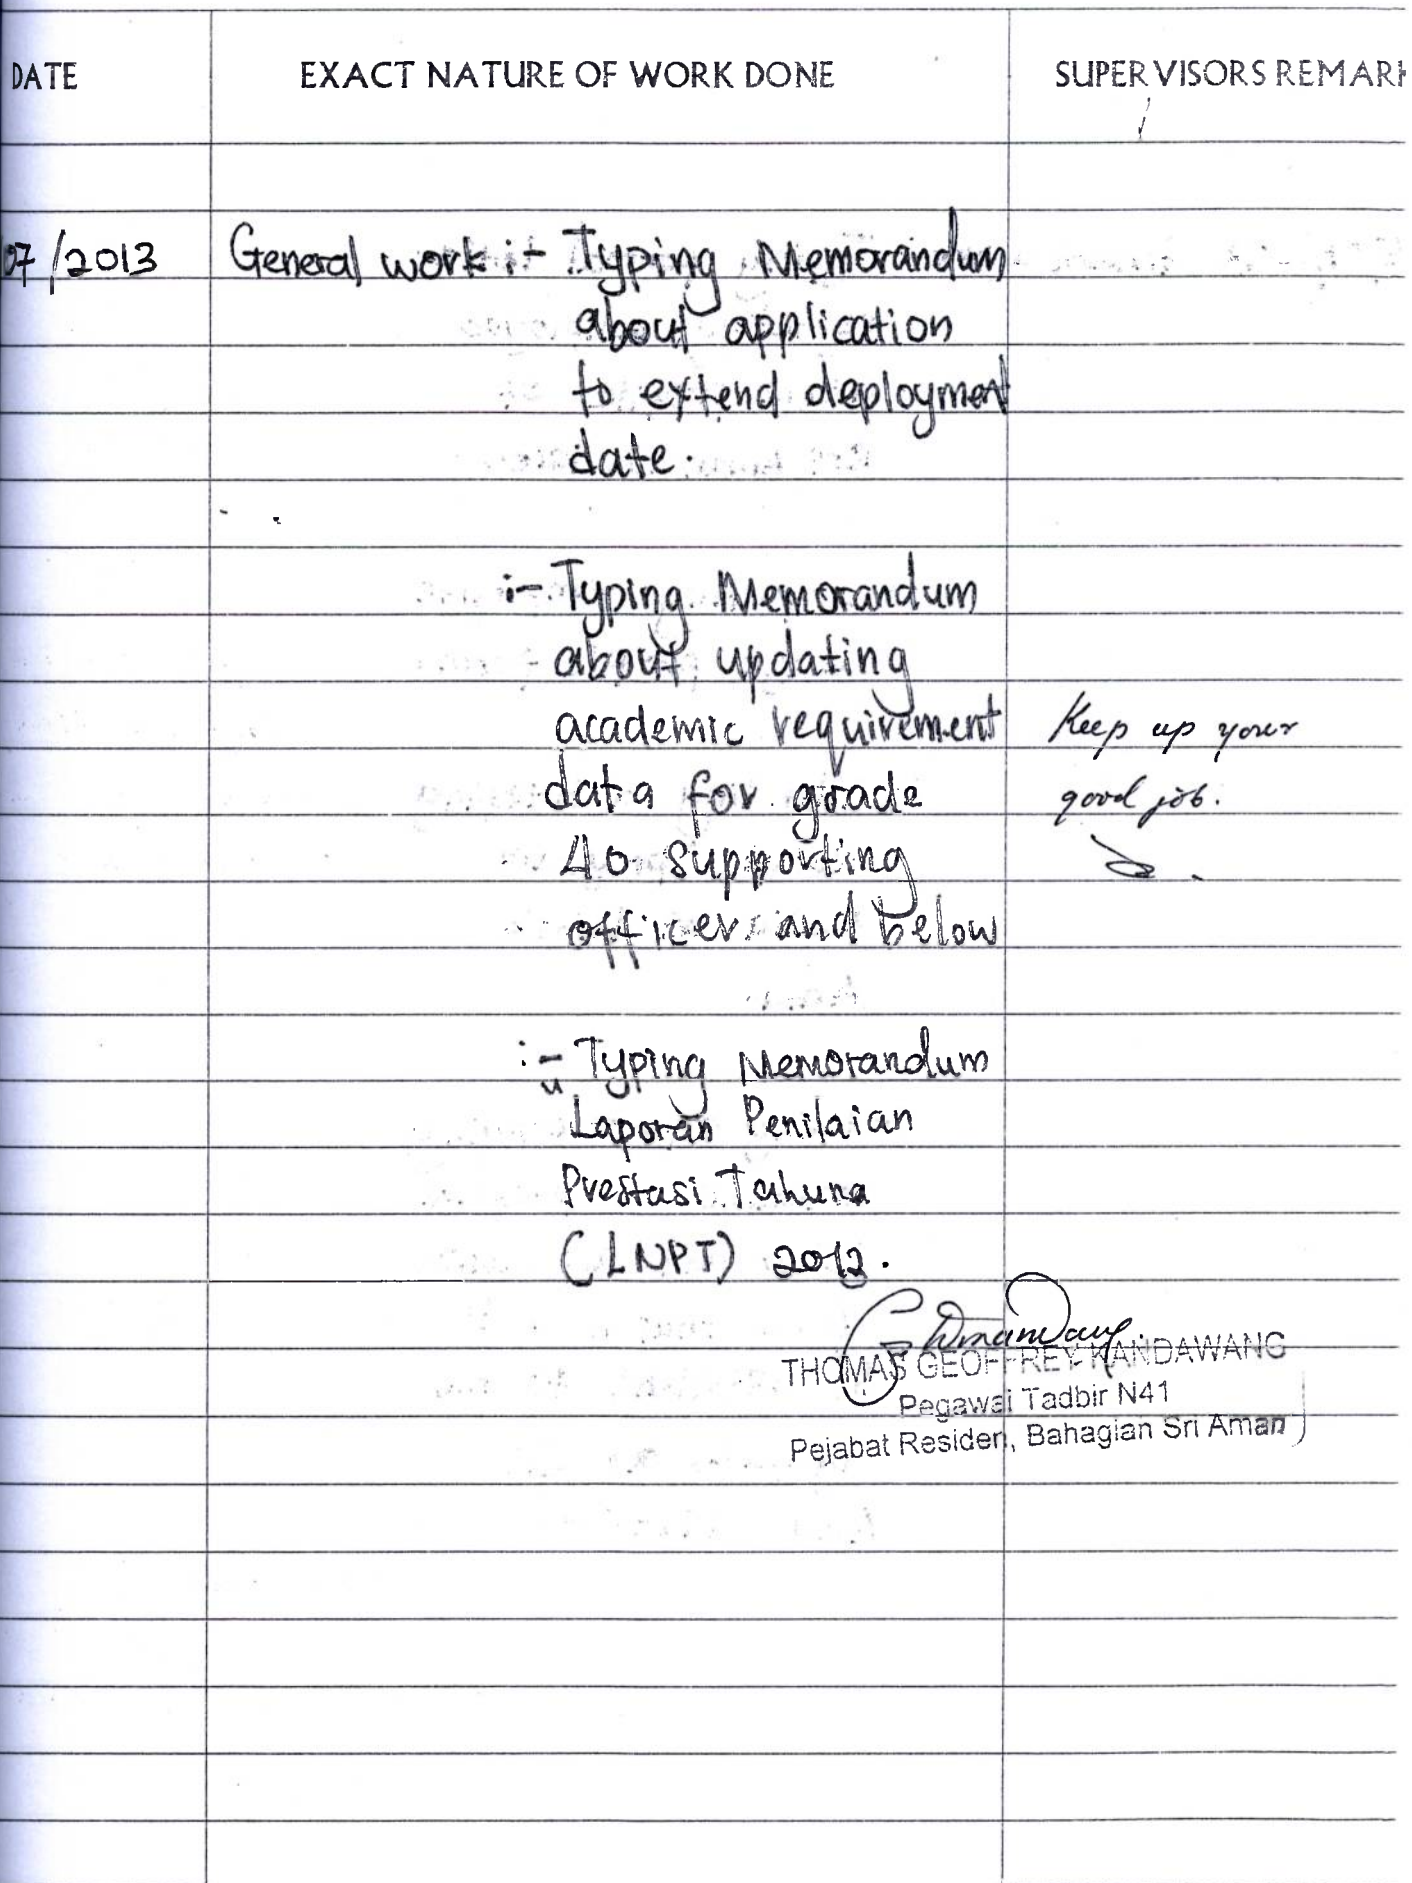 DATE EXACT NATURE OF WORK DONE SUPERVISORS REMARK
07/2013 General work :- Typing Memorandum
about application
to extend deployment
date.
:- Typing Memorandum
about updating
academic requirement Keep up your
data for grade good job.
40 supporting
officer and below
:- Typing Memorandum
Laporan Penilaian
Prestasi Tahuna
(LNPT) 2012.
THOMAS GEOFFREY KANDAWANG
Pegawai Tadbir N41
Pejabat Residen, Bahagian Sri Aman